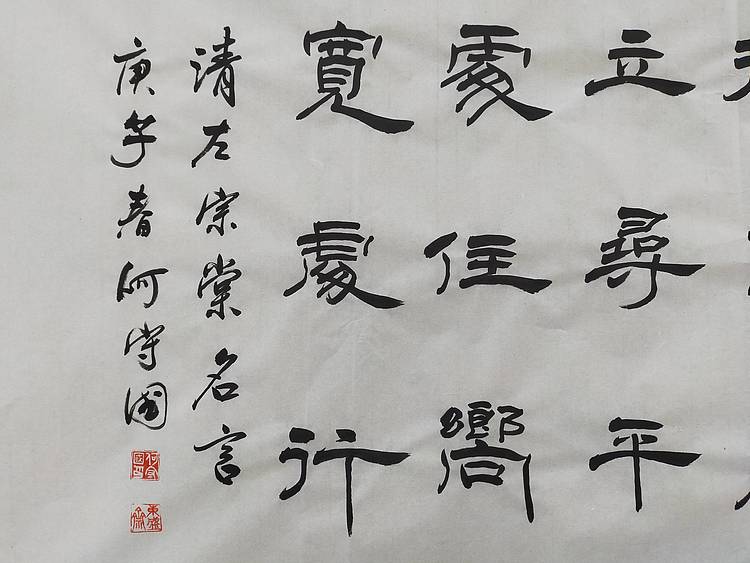 立尋平
處住嚮
寬處行
清左宗棠名言
庚子春何守國
何守國印